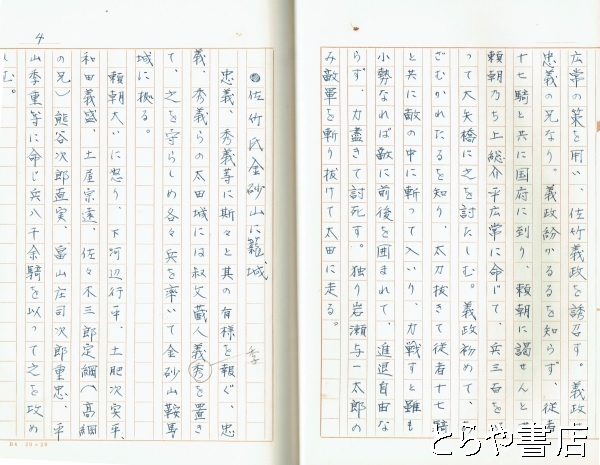 広常の策を用い、佐竹義政を誘召す。義政
忠義の兄なり。義政紛かるるを知らず、従者
十七騎と共に国府に到り、頼朝に謁せんと
頼朝乃ち上総介平広常に命じて、兵三百を
って大矢橋に之を討たしむ。義政初めて、
ざむかれたるを知り、太刀抜きて従者十七騎
と共に敵の中に斬って入いり、力戦すと雖も
小勢なれば敵に前後を囲まれて、進退自由な
らず、力盡きて討死す。独り岩瀬与一太郎の
み敵軍を斬り抜けて太田に走る。
4
●佐竹氏金砂山に籠城
忠義、秀義等に斯々と其の有様を報ぐ、忠
義、秀義らの太田城には叔父蔵人義秀を置き
季
て、之を守らしめ各々兵を率いて金砂山鞍馬
城に拠る。
頼朝大いに怒り、下河辺行平、土肥次実平、
和田義盛、土屋宗遠、佐々木三郎定綱(高綱
の兄)熊谷次郎直実、畠山庄司次郎重忠、平
山季重等に命じ兵八千余騎を以って之を攻め
しむ。
B4 20×20
とらや書店